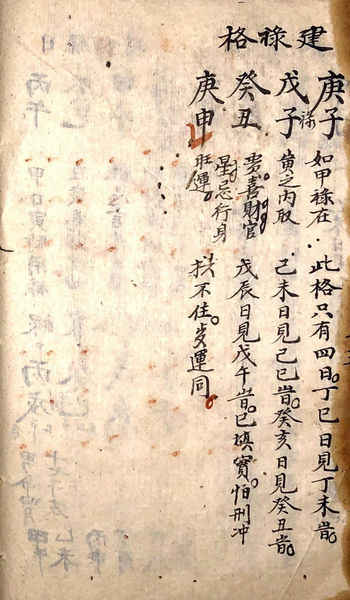 建祿格
庚子 如甲祿在 此格只有四日。丁巳日見丁未
祿
戊子 寅之内取 己未日見己巳 癸亥日見癸丑
癸丑 喜財官 戊辰日見戊午 巳填實。怕刑冲
庚申 星忌行身 找不住。歲運同。
旺運。